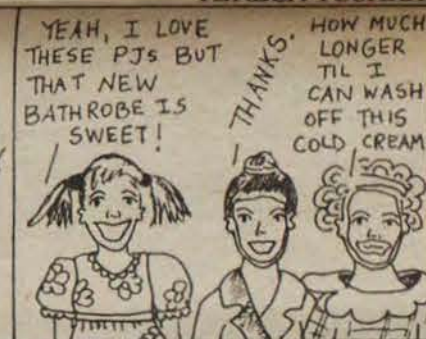 YEAH, I LOVE
THESE PJs BUT
THAT NEW
BATHROBE IS
SWEET!
THANKS.
HOW MUCH
LONGER
TIL I
CAN WASH
OFF THIS
COLD CREAM